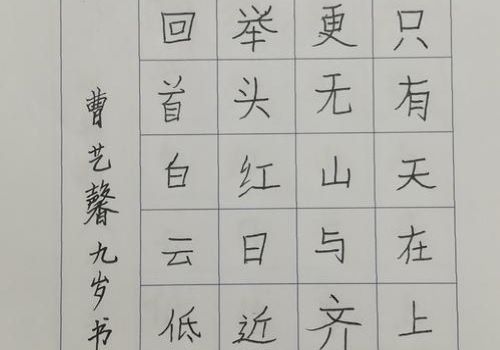 只有天在上
更无山与齐
举头红日近
回首白云低
曹艺馨九岁书